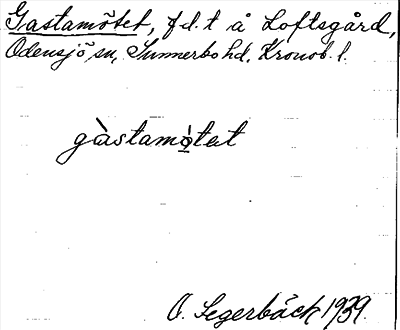 Gastamötet, f d. t å Loftsgård,
Odensjö sn, Sunnerbo hd, Kronob. l.
gàstamø̀tet
O. Segerbäck 1939.